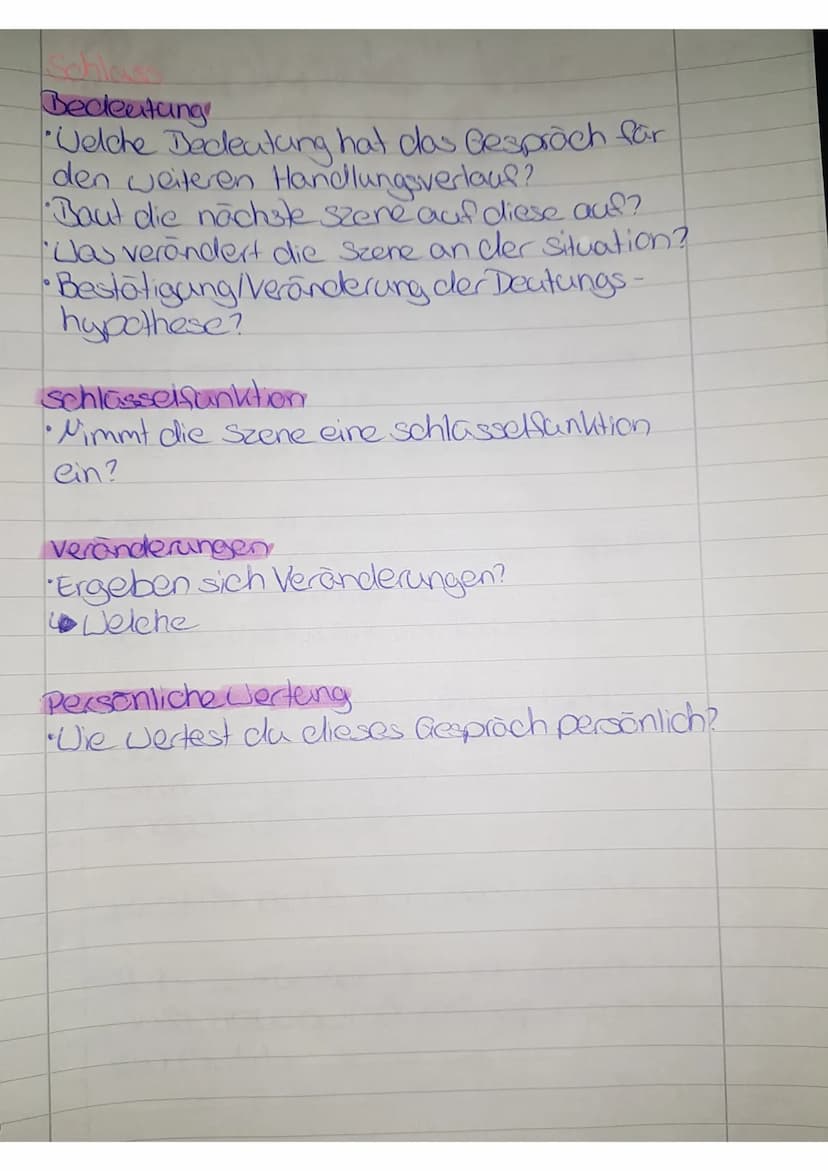 Schluss
Bedeutung
• Welche Bedeutung hat das Gespräch für
den weiteren Handlungsverlauf?
• Baut die nächste Szene auf diese auf?
• Was verändert die Szene an der Situation?
• Bestätigung/Veränderung der Deutungs-
hypothese?
Schlüsselfunktion
• Nimmt die Szene eine Schlüsselfunktion
ein?
Veränderungen
• Ergeben sich Veränderungen?
↳ Welche
Persönliche Wertung
• Wie wertest du dieses Gespräch persönlich?